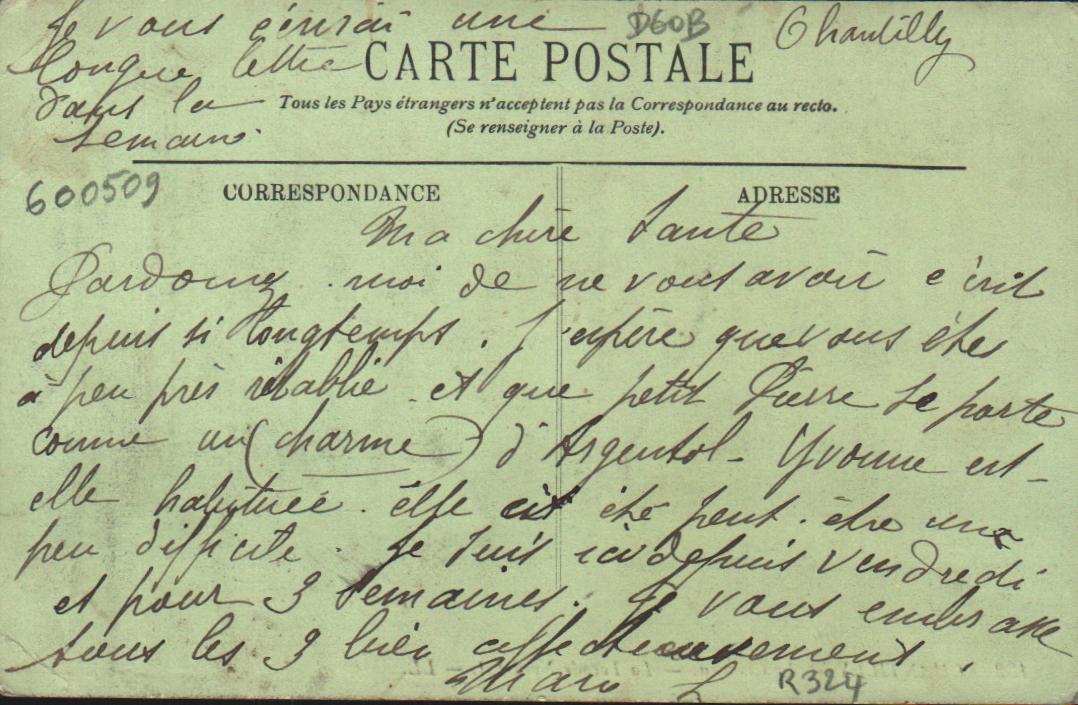 Je vous écrirai une
longue lettre
dans la
semaine.
D60B
Chantilly
CARTE POSTALE
Tous les Pays étrangers n'acceptent pas la Correspondance au recto.
(Se renseigner à la Poste).
600509
CORRESPONDANCE
ADRESSE
Ma chère tante
Pardonnez. moi de ne vous avoir écrit
depuis si longtemps. J'espère que vous êtes
à peu près rétablie et que petit Pierre se porte
comme un (charme) d'Argentol - Yvonne est-
elle habituée. elle été peut-être un
peu difficile. Je suis ici depuis vendredi
et pour 3 semaines. Je vous embrasse
tous les 3 bien affectueusement.
R324